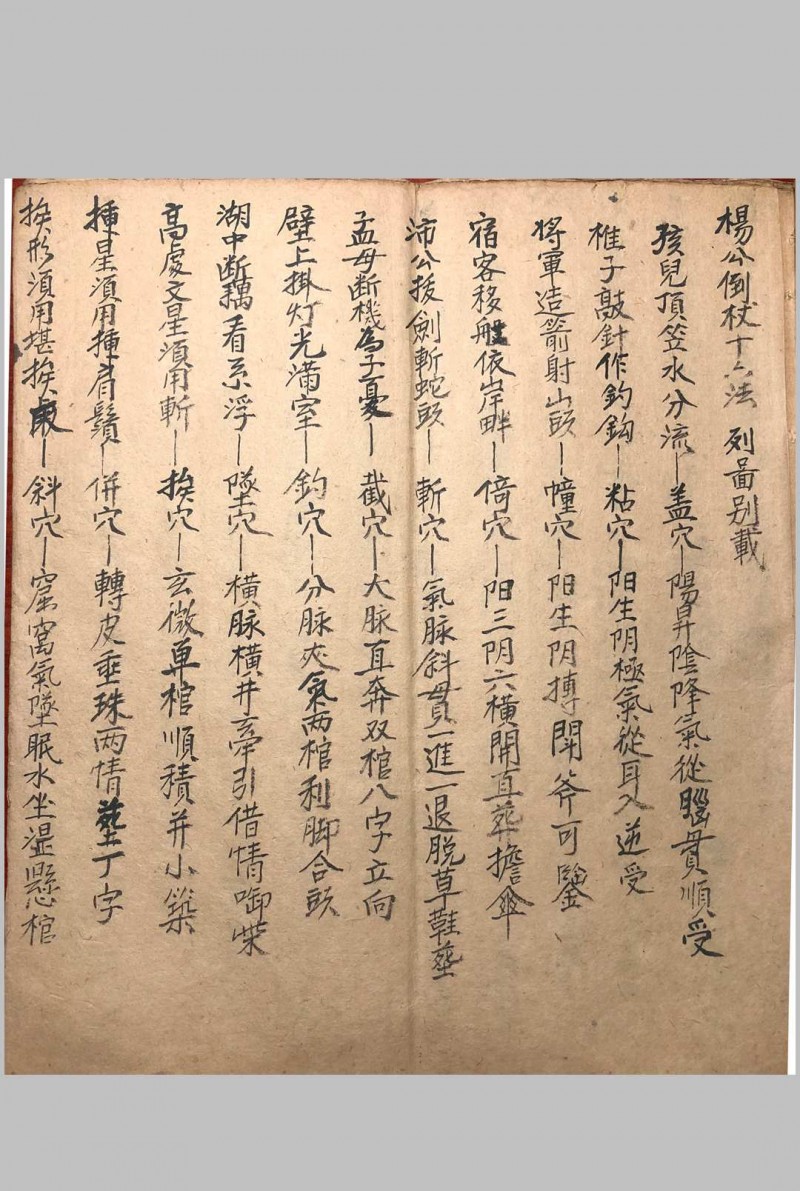 楊公倒杖十六法 列啚别載
孩兒頂笠水分流—盖穴—陽昇陰降氣從腦貫順受
椎子敲針作釣鈎—粘穴—阳生阴極氣從耳入逆受
将軍造箭射山頭—幢穴—阳生阴摶閗斧可鑒
宿客移船依岸畔—倚穴—阳三阴六横開直葬擔傘—
沛公拔劍斬蛇頭—斬穴—氣脉斜貫一進一退脱草鞋塟
孟母断機為子憂—截穴—大脉直奔双棺八字立向
壁上掛灯光满室—釣穴—分脉夾氣两棺利脚合頭
湖中断藕看糸浮—墜穴—横脉横并牽引借情啣柴
高處文星須用斬—挨穴—玄微单棺順積并小築
挿星須用挿眉鬚—併穴—轉皮垂珠两情塟丁字
挨形須用堪挨—斜穴—窟窩氣墜眠水坐湿懸棺